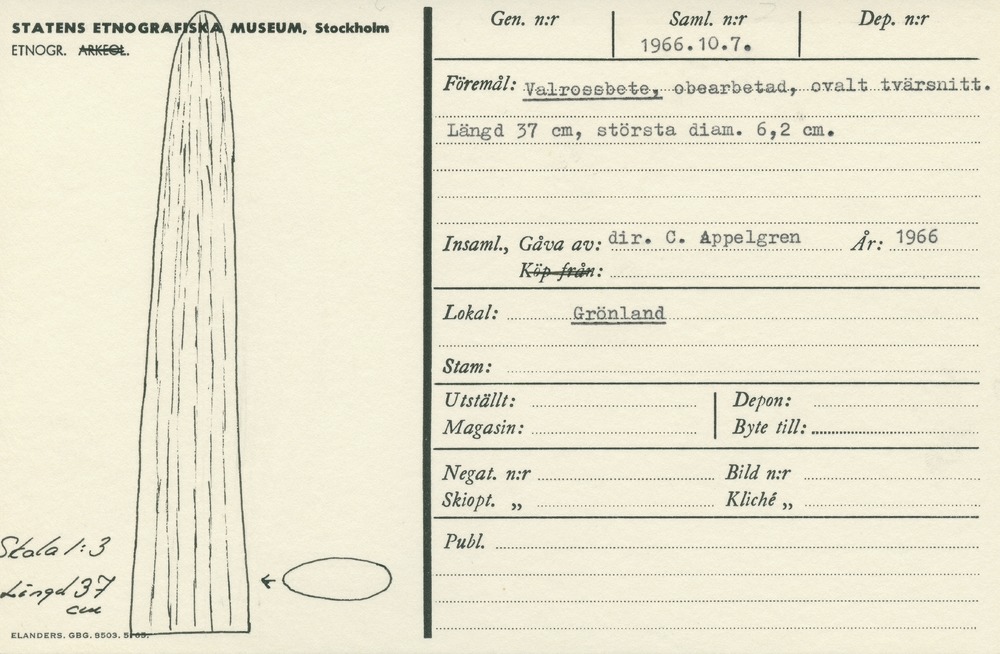 STATENS ETNOGRAFISKA MUSEUM, Stockholm
ETNOGR. ARKEOL.
Skala 1:3
Längd 37
cm
ELANDERS. GBG. 8503. 5. 65.
Gen. n:r Saml. n:r Dep. n:r
1966.10.7.
Föremål: Valrossbete, obearbetad, ovalt tvärsnitt.
Längd 37 cm, största diam. 6,2 cm.
Insaml., Gåva av: dir. C. Appelgren År: 1966
Köp från:
Lokal: Grönland
Stam:
Utställt: Depon:
Magasin: Byte till:
Negat. n:r Bild n:r
Skiopt. „ Kliché „
Publ.